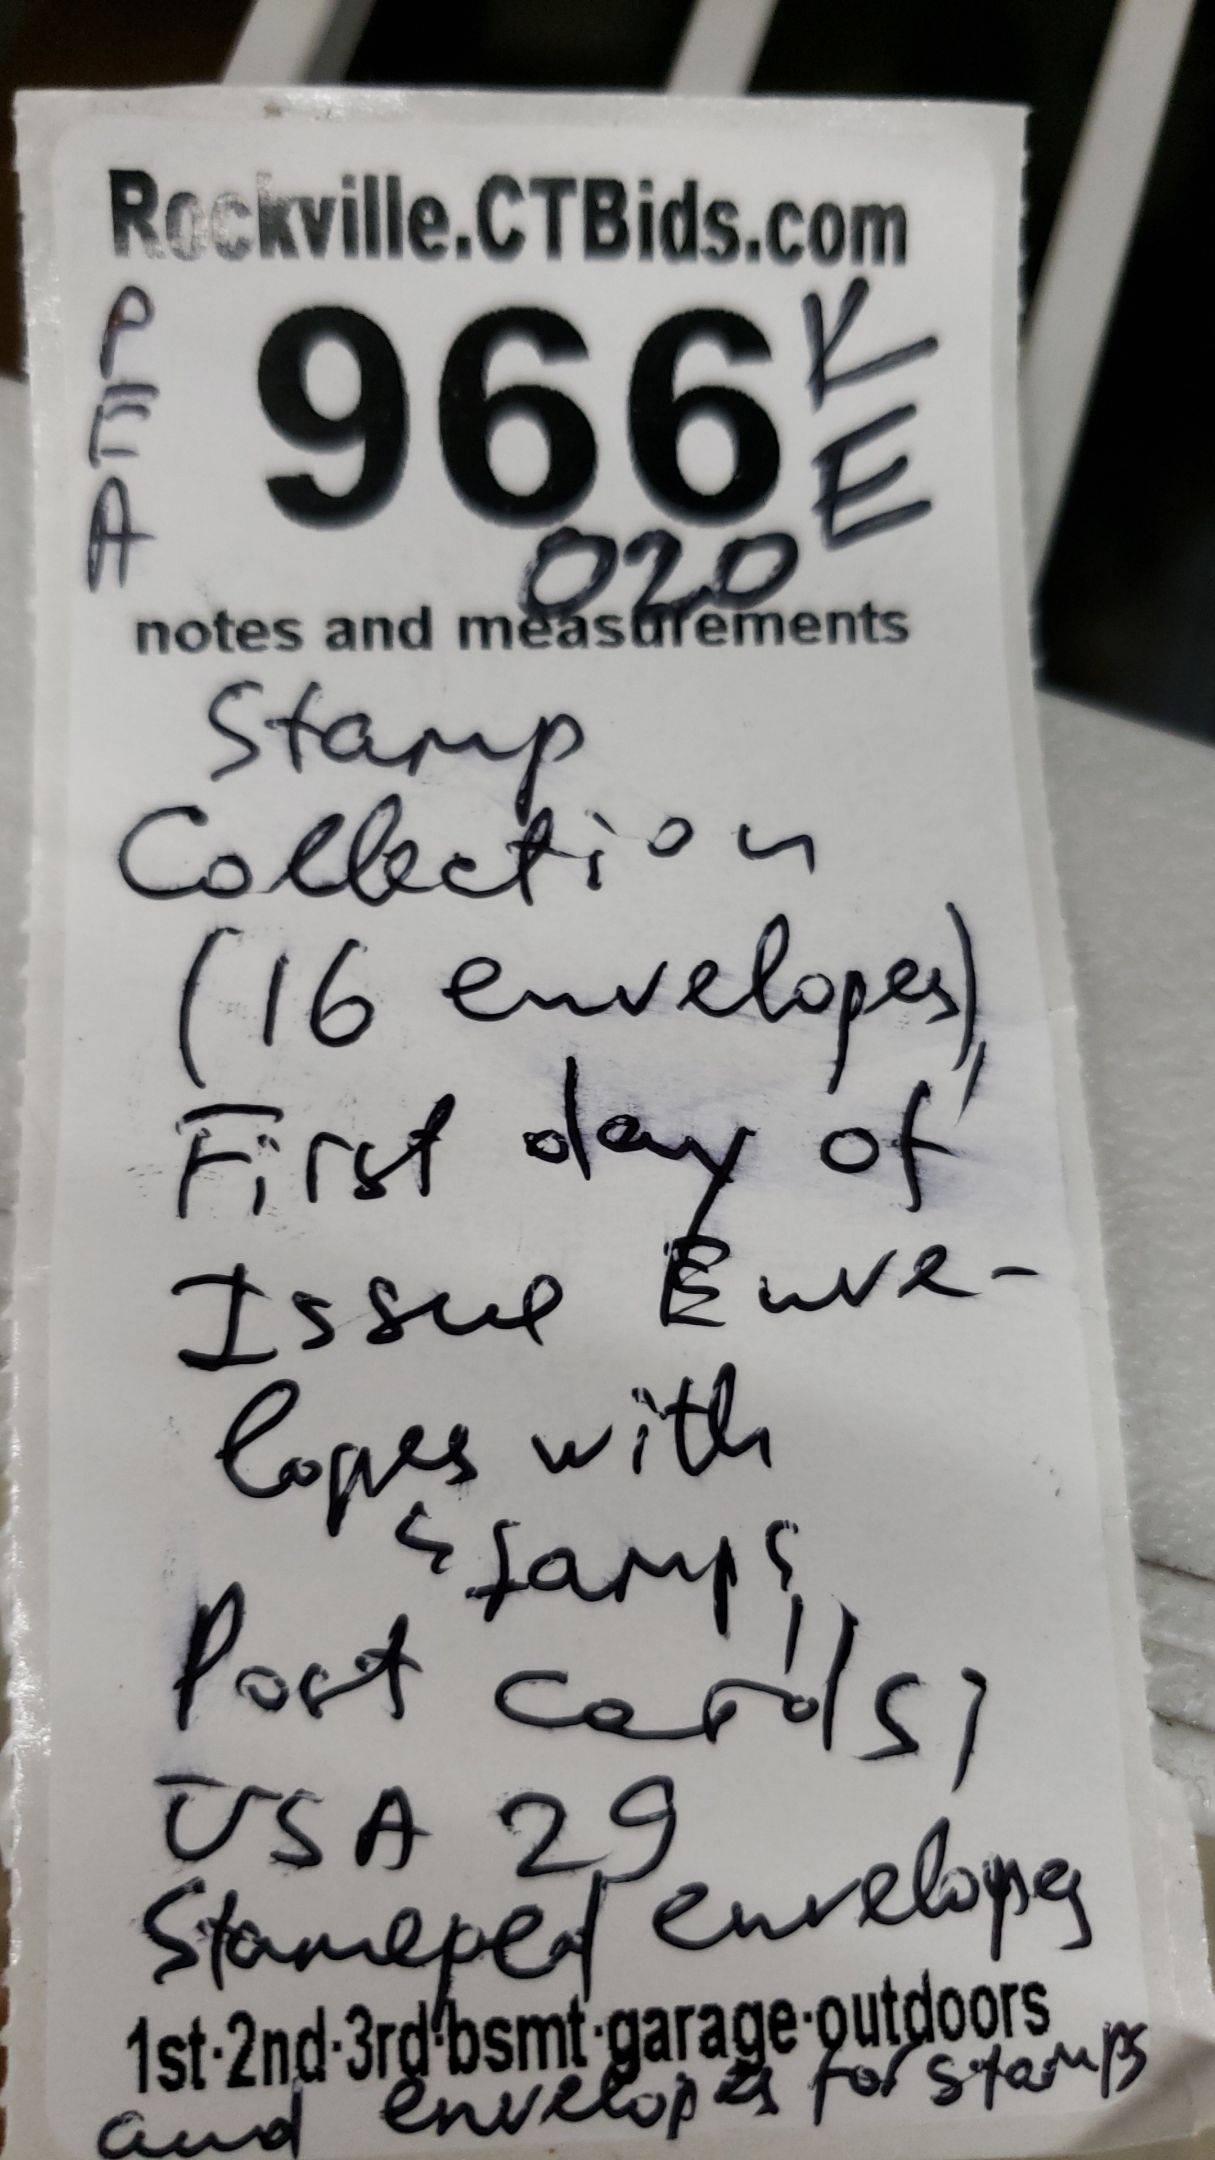 Rockville.CTBids.com
PEA
966
KE
020
notes and measurements
Stamp
Collection
(16 envelopes),
First day of
Issue Enve-
lopes with
stamps,
Post cards,
USA 29
Stamped envelopes
1st·2nd·3rd·bsmt·garage·outdoors
and envelopes for stamps